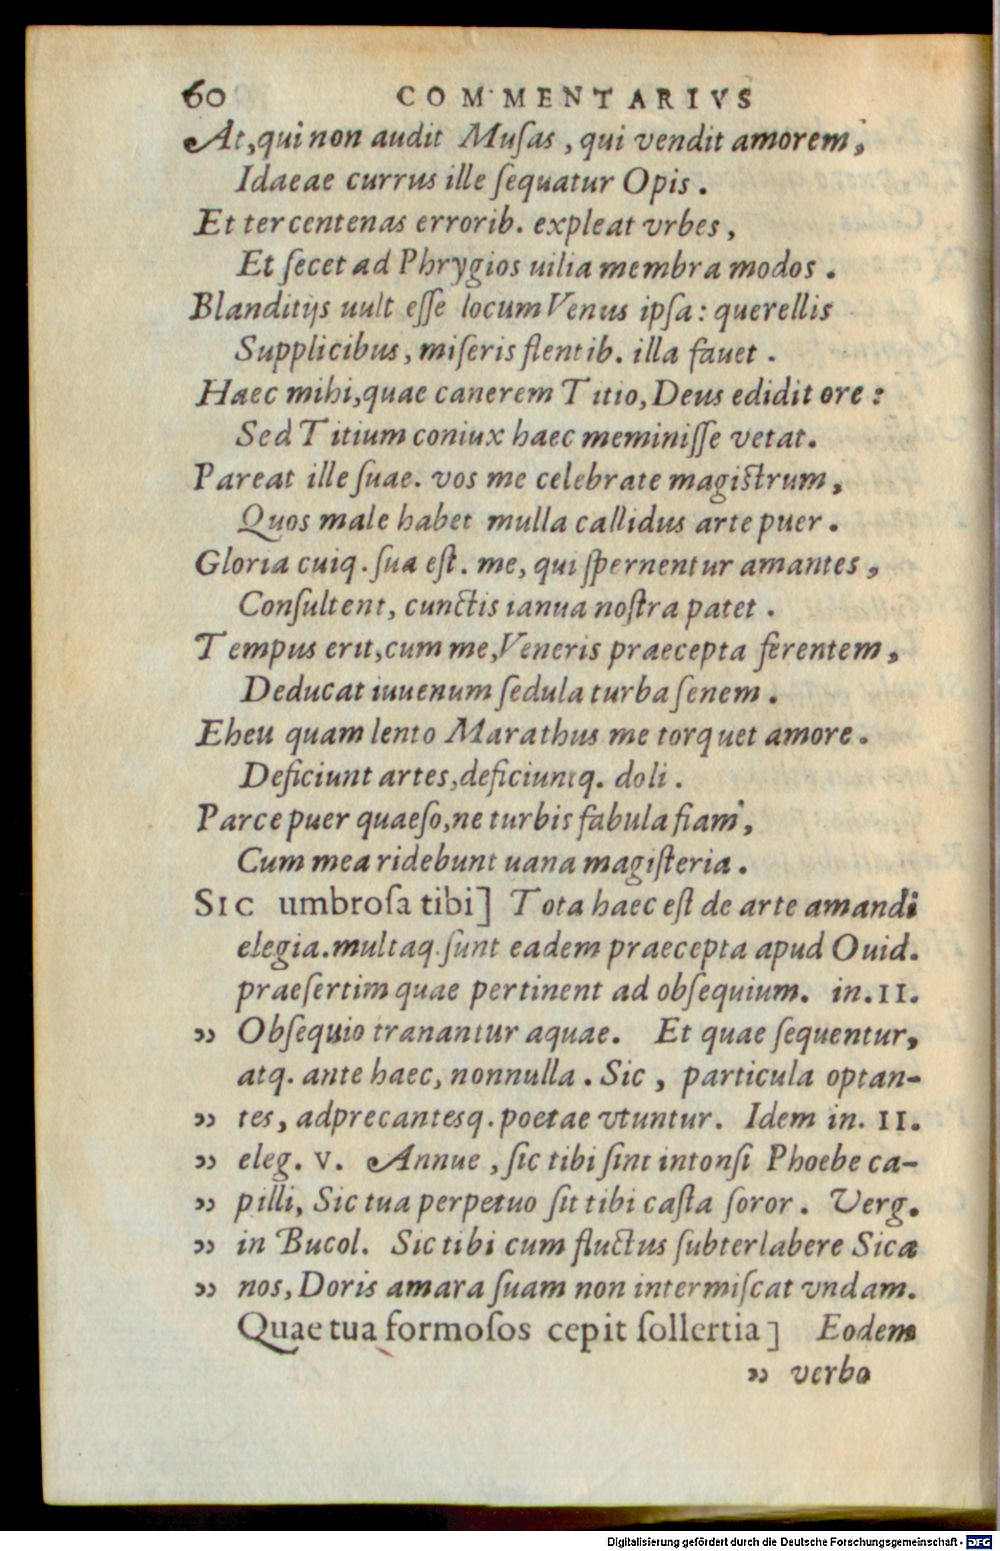 60 COMMENTARIVS
At, qui non audit Muſas, qui vendit amorem,
Idaeae currus ille ſequatur Opis.
Et tercentenas errorib. expleat vrbes,
Et ſecet ad Phrygios uilia membra modos.
Blanditijs uult eſſe locum Venus ipſa: querellis
Supplicibus, miſeris flentib. illa fauet.
Haec mihi, quae canerem Titio, Deus edidit ore:
Sed Titium coniux haec meminiſſe vetat.
Pareat ille ſuae. vos me celebrate magiſtrum,
Quos male habet mulla callidus arte puer.
Gloria cuiq. ſua eſt. me, qui ſpernentur amantes,
Conſultent, cunctis ianua noſtra patet.
Tempus erit, cum me, Veneris praecepta ferentem,
Deducat iuuenum ſedula turba ſenem.
Eheu quam lento Marathus me torquet amore.
Deficiunt artes, deficiuntq. doli.
Parce puer quaeſo, ne turbis fabula fiam,
Cum mea ridebunt uana magiſteria.
SIC umbroſa tibi] Tota haec eſt de arte amandi
elegia. multaq. ſunt eadem praecepta apud Ouid.
praeſertim quae pertinent ad obſequium. in. II.
” Obſequio tranantur aquae. Et quae ſequentur,
atq. ante haec, nonnulla. Sic, particula optan-
” tes, adprecantesq. poetae vtuntur. Idem in. II.
” eleg. V. Annue, ſic tibi ſint intonſi Phoebe ca-
” pilli, Sic tua perpetuo ſit tibi caſta ſoror. Verg.
” in Bucol. Sic tibi cum fluctus ſubterlabere Sica
” nos, Doris amara ſuam non intermiſcat vndam.
Quae tua formoſos cepit ſollertia] Eodem
” verbo
Digitalisierung gefördert durch die Deutsche Forschungsgemeinschaft - DFG